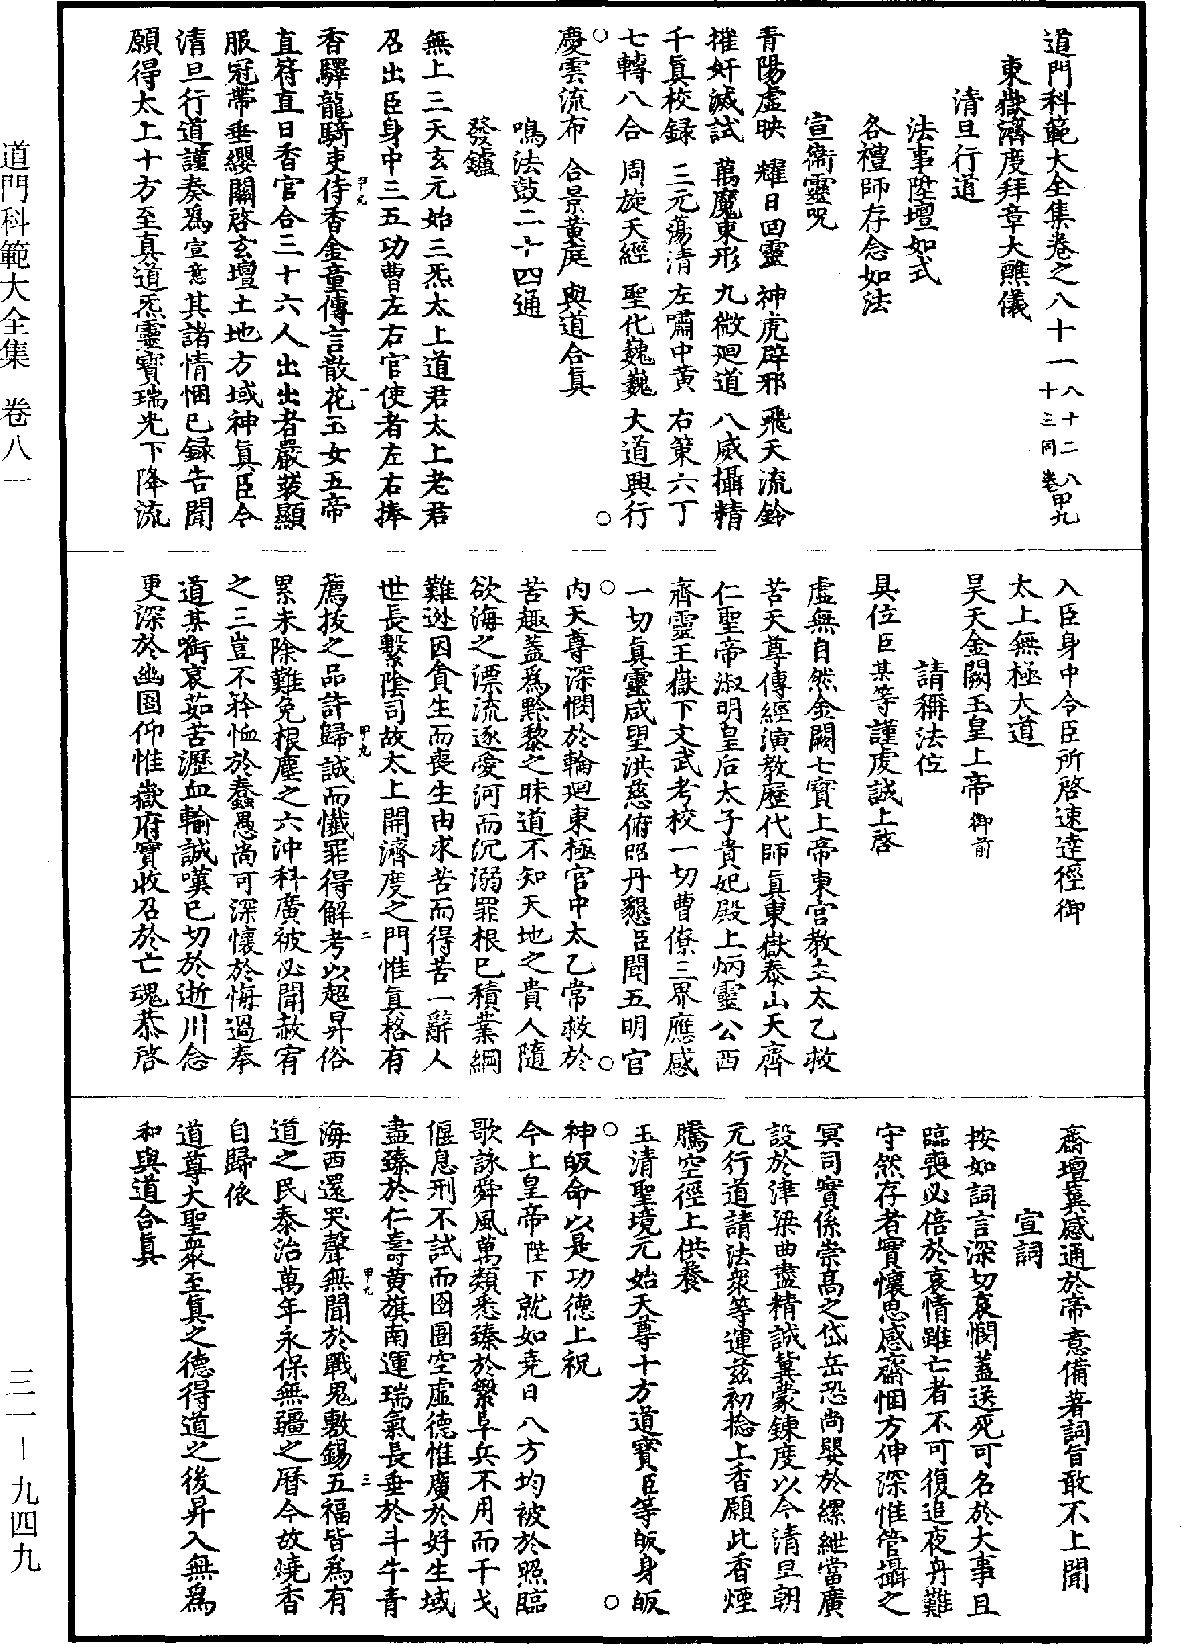 道門科範大全集 卷八一
三一—九四九
道門科範大全集卷之八十一 八十二 八十三同卷 甲九
東嶽濟度拜章大醮儀
清旦行道
法事陞壇如式
各禮師存念如法
宣衛靈呪
青陽虛映 耀日回靈 神虎辟邪 飛天流鈴
摧奸滅試 萬魔束形 九微廻道 八威攝精
千眞校錄 三元蕩清 左嘯中黃 右策六丁
七轉八合 周旋天經 聖化巍巍 大道興行
慶雲流布 合景黃庭 與道合眞
鳴法鼓二十四通
發鑪
無上三天玄元始三炁太上道君太上老君
召出臣身中三五功曹左右官使者左右捧
香驛龍騎吏侍香金童傳言散花玉女五帝
直符直日香官合三十六人出出者嚴裝顯
服冠帶垂纓關啓玄壇土地方域神眞臣今
清旦行道謹奏爲宣意其諸情悃已錄告聞
願得太上十方至眞道炁靈寶瑞光下降流
入臣身中令臣所啓速達徑御
太上無極大道
昊天金闕玉皇上帝御前
請稱法位
具位臣某等謹虔誠上啓
虛無自然金闕七寶上帝東宮教主太乙救
苦天尊傳經演教歷代師眞東嶽泰山天齊
仁聖帝淑明皇后太子貴妃殿上炳靈公西
齊靈王嶽下文武考校一切曹僚三界應感
一切眞靈咸望洪慈俯照丹懇臣聞五明官
內天尊深憫於輪廻東極宮中太乙常救於
苦趣蓋爲黔黎之昧道不知天地之貴人隨
欲海之漂流逐愛河而沉溺罪根已積業綱
難逃因貪生而喪生由求苦而得苦一辭人
世長繫陰司故太上開濟度之門惟眞格有
薦拔之品許歸誠而懺罪得解考以超昇俗
累未除難免根塵之六沖科廣被必聞赦宥
之三豈不矜恤於蠢愚尚可深懷於悔過奉
道某銜哀茹苦瀝血輸誠嘆已切於逝川念
更深於幽圄仰惟嶽府實收召於亡魂恭啓
齋壇冀感通於帝意備著詞旨敢不上聞
宣詞
按如詞言深切哀憫蓋送死可名於大事且
臨喪必倍於哀情雖亡者不可復追夜舟難
守然存者實懷思感齋悃方伸深惟管攝之
冥司實係崇高之岱岳恐尚嬰於縲紲當廣
設於津梁曲盡精誠冀蒙鍊度以今清旦朝
元行道請法衆等運玆初捻上香願此香煙
騰空徑上供養
玉清聖境元始天尊十方道寶臣等皈身皈
神皈命以是功德上祝
今上皇帝陛下就如堯日八方均被於照臨
歌詠舜風萬類悉臻於繁阜兵不用而干戈
偃息刑不試而囹圄空虛德惟廣於好生域
盡臻於仁壽黃旗南運瑞氣長垂於斗牛青
海西還哭聲無聞於戰鬼敷錫五福皆爲有
道之民泰治萬年永保無疆之曆今故燒香
自歸依
道尊大聖衆至眞之德得道之後昇入無爲
和與道合眞